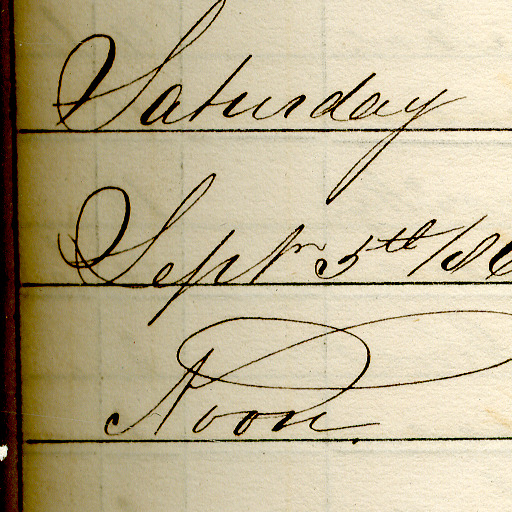 Saturday
Septr 5th 186
Noon.